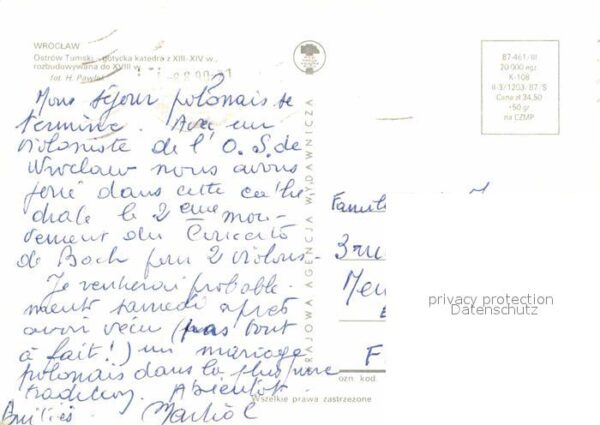 WROCŁAW
Ostrów Tumski - gotycka katedra z XIII-XIV w.,
rozbudowywana do XVIII w.
fot. H. Pawlat
Mon séjour polonais se
termine. Avec un
violoniste de l'O.S. de
Wroclaw nous avons
joué dans cette cathé
drale le 2ème mou-
vement du Concerto
de Bach pour 2 violons.
Je rentrerai probable-
ment samedi après
avoir vécu (pas tout
à fait!) un mariage
polonais dans la plus pure
tradition. A bientôt.
Amitiés
KRAJOWA AGENCJA WYDAWNICZA
87-461/III
20 000 egz.
K-108
II-3/1203/87/S
Cena zł 34,50
+50 gr
na CZMP
3 ru
F
privacy protection
Datenschutz
ozn. kod.
Wszelkie prawa zastrzeżone